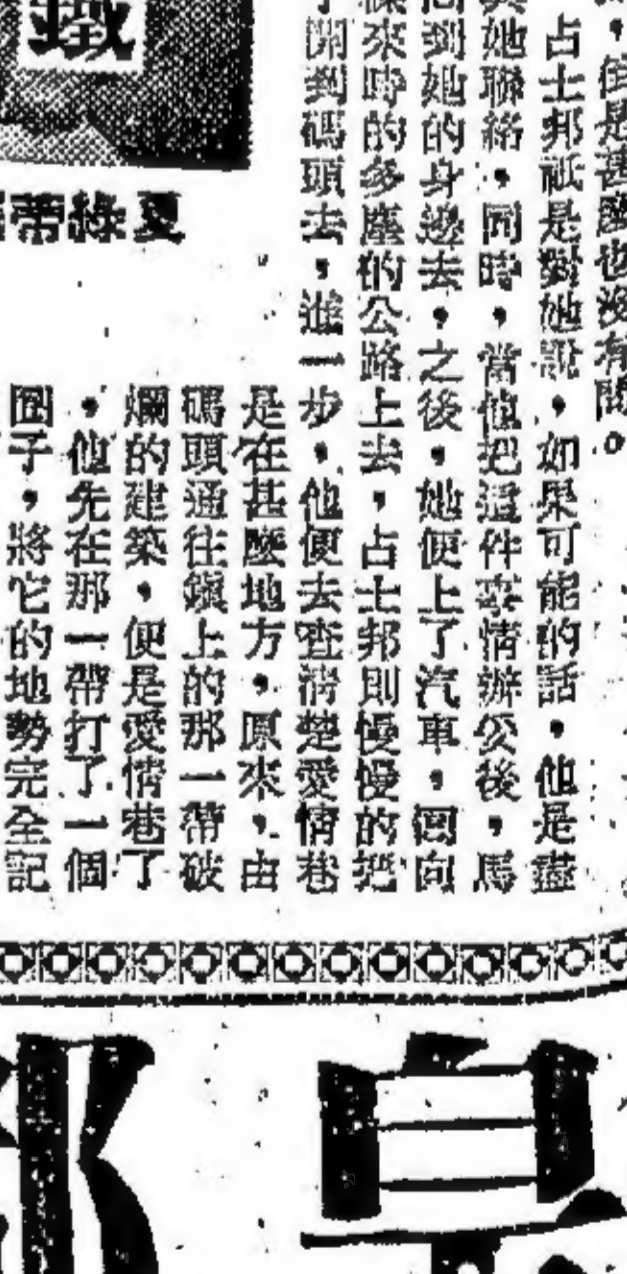 倒是甚麼也沒有問。
占士邦祇是對她說,如果可能的話,他是盡
她聯絡,同時,當他把這件事情辦公後,馬
到她的身邊去,之後,她便上了汽車,囘向
來時的多塵的公路上去,占士邦則慢慢的把
開到碼頭去,進一步,他便去查清楚愛情巷
是在甚麼地方,原來,由
碼頭通往鎮上的那一帶破
爛的建築,便是愛情巷了
,他先在那一帶打了一個
圈子,將它的地勢完全記
鐵
夏綠蒂